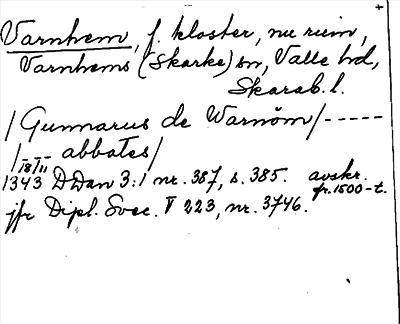 Varnhem, f. kloster, nu ruin,
Varnhems (Skarke) sn, Valle hd,
Skarab. l.
/Gunnarus de Warnöm/-----
/--- abbates/
1343 18/11 DDan 3:1 nr. 387, s. 385. avskr. fr. 1500-t.
jfr Dipl. Svec. V 223, nr. 3746.